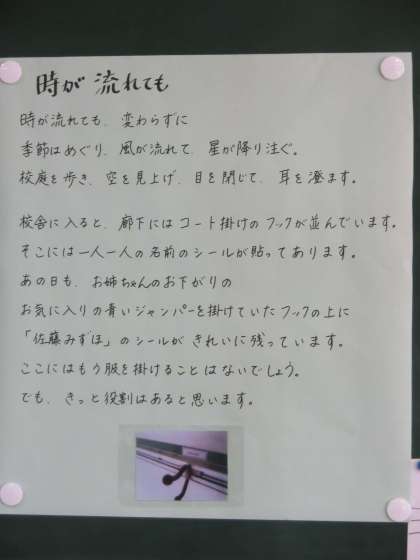 時が流れても
時が流れても、変わらずに
季節はめぐり、風が流れて、星が降り注ぐ。
校庭を歩き、空を見上げ、目を閉じて、耳を澄ます。
校舎に入ると、廊下にはコート掛けのフックが並んでいます。
そこには一人一人の名前のシールが貼ってあります。
あの日も、お姉ちゃんのお下がりの
お気に入りの青いジャンパーを掛けていたフックの上に
「佐藤みずほ」のシールがきれいに残っています。
ここにはもう服を掛けることはないでしょう。
でも、きっと役割はあると思います。